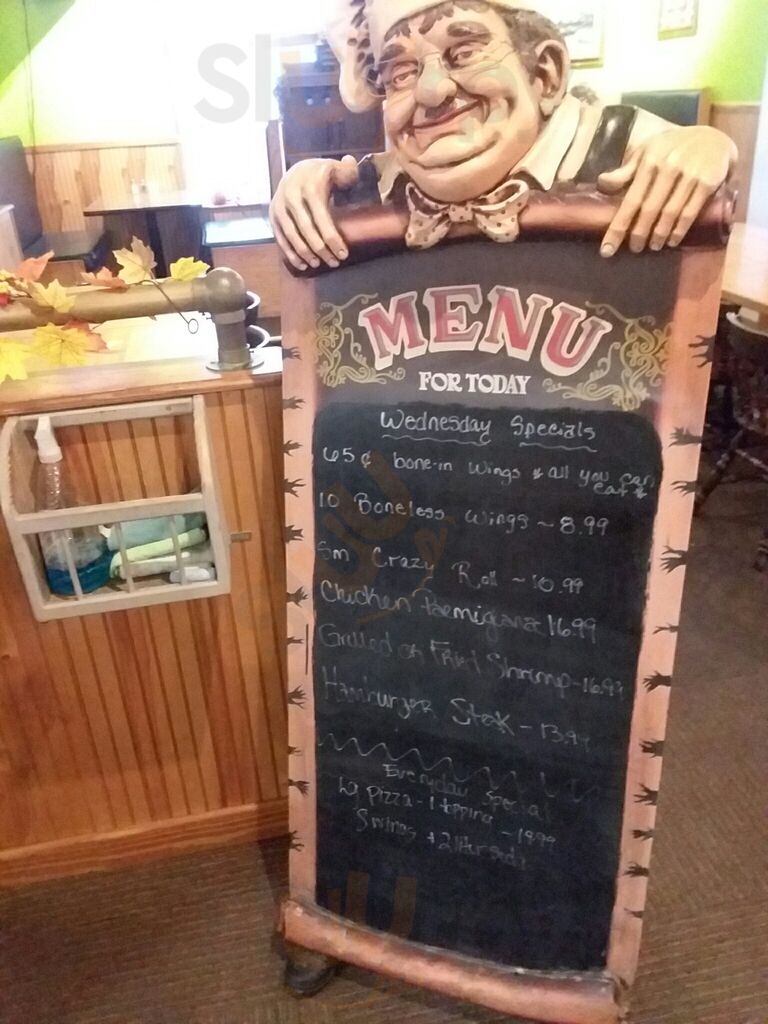 MENU
FOR TODAY
Wednesday Specials
65¢ bone-in wings * all you can
eat *
10 Boneless wings ~ 8.99
Sm Crazy Roll ~ 10.99
Chicken Parmigiana 16.99
Grilled or Fried Shrimp - 16.99
Hamburger Steak - 13.99
Everyday Special
Lg Pizza - 1 topping
5 wings + 2 liter soda - 19.99